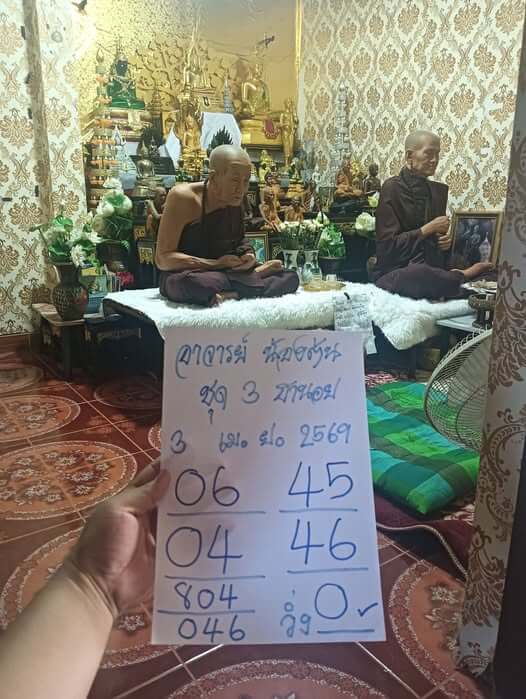 อาจารย์ น้องร้าน
ชุด 3 ฮานอย
3 เม.ย. 2569
06 45
04 46
804
046 วิ่ง 0 ✓